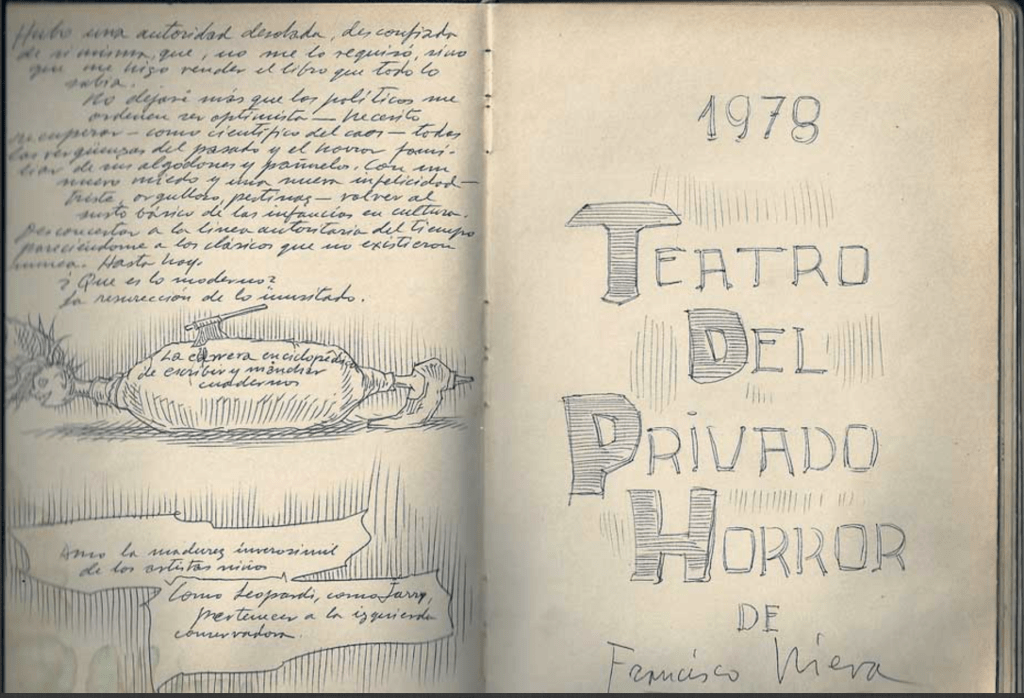 Hubo una autoridad desolada, desconfiada
de si misma, que, no me lo requisó, sino
que me hizo vender el libro que todo lo
sabia.
No dejaré más que los políticos me
ordenen ser optimista — Necesito
recuperar — como científico del caos — todas
las vergüenzas del pasado y el horror fami-
liar de sus algodones y pañuelos. Con un
nuevo miedo y una nueva infelicidad —
triste, orgullosa, pertinaz — volver al
susto básico de las infancias en cultura.
Desconcertar a la linea autoritaria del tiempo
pareciéndome a los clásicos que no existieron
nunca. Hasta hoy.
¿Que es lo moderno?
La resurección de lo inusitado.
La carrera enciclopédica
de escribir y manchar
cuadernos
Amo la madurez inverosimil
de los artistas niños
Como Leopardi, como Jarry,
pertenecer a la izquierda
conservadora.
1978
TEATRO
DEL
PRIVADO
HORROR
DE
Francisco Nieva